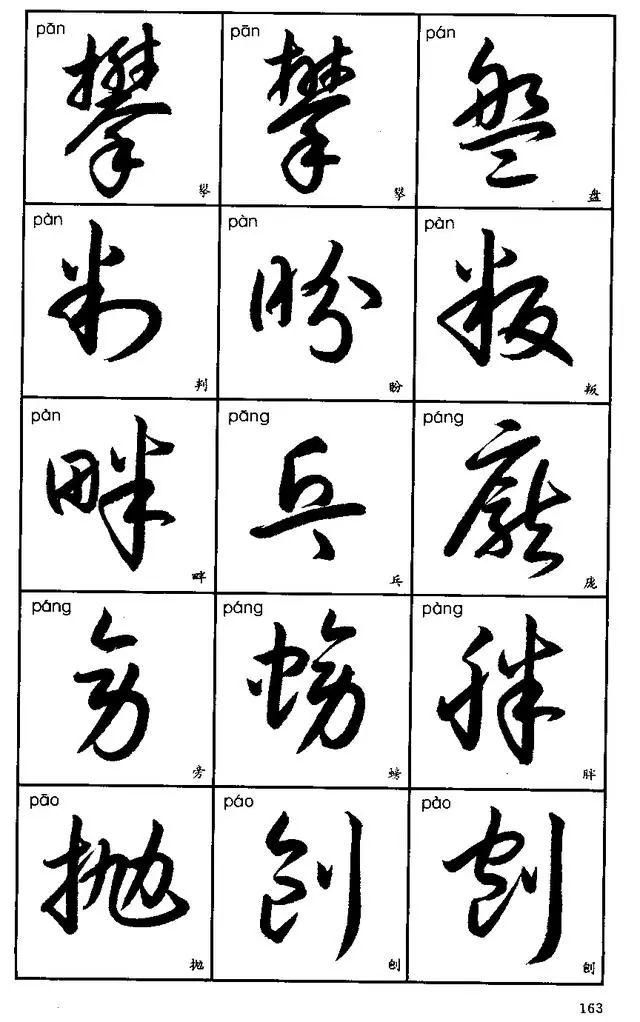 pǎn
攀
攀
pān
攀
攀
pán
盤
盘
pàn
判
判
pàn
盼
盼
pàn
叛
叛
pàn
畔
畔
pāng
乓
乓
páng
龐
庞
páng
旁
旁
páng
螃
螃
pàng
胖
胖
pāo
抛
抛
páo
刨
刨
pào
刨
刨
163